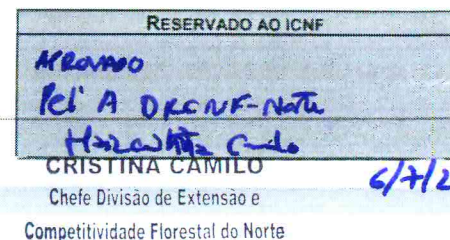 RESERVADO AO ICNF
APROVADO
Pel' A DRCNF-Norte
CRISTINA CAMILO
6/7/2
Chefe Divisão de Extensão e
Competitividade Florestal do Norte